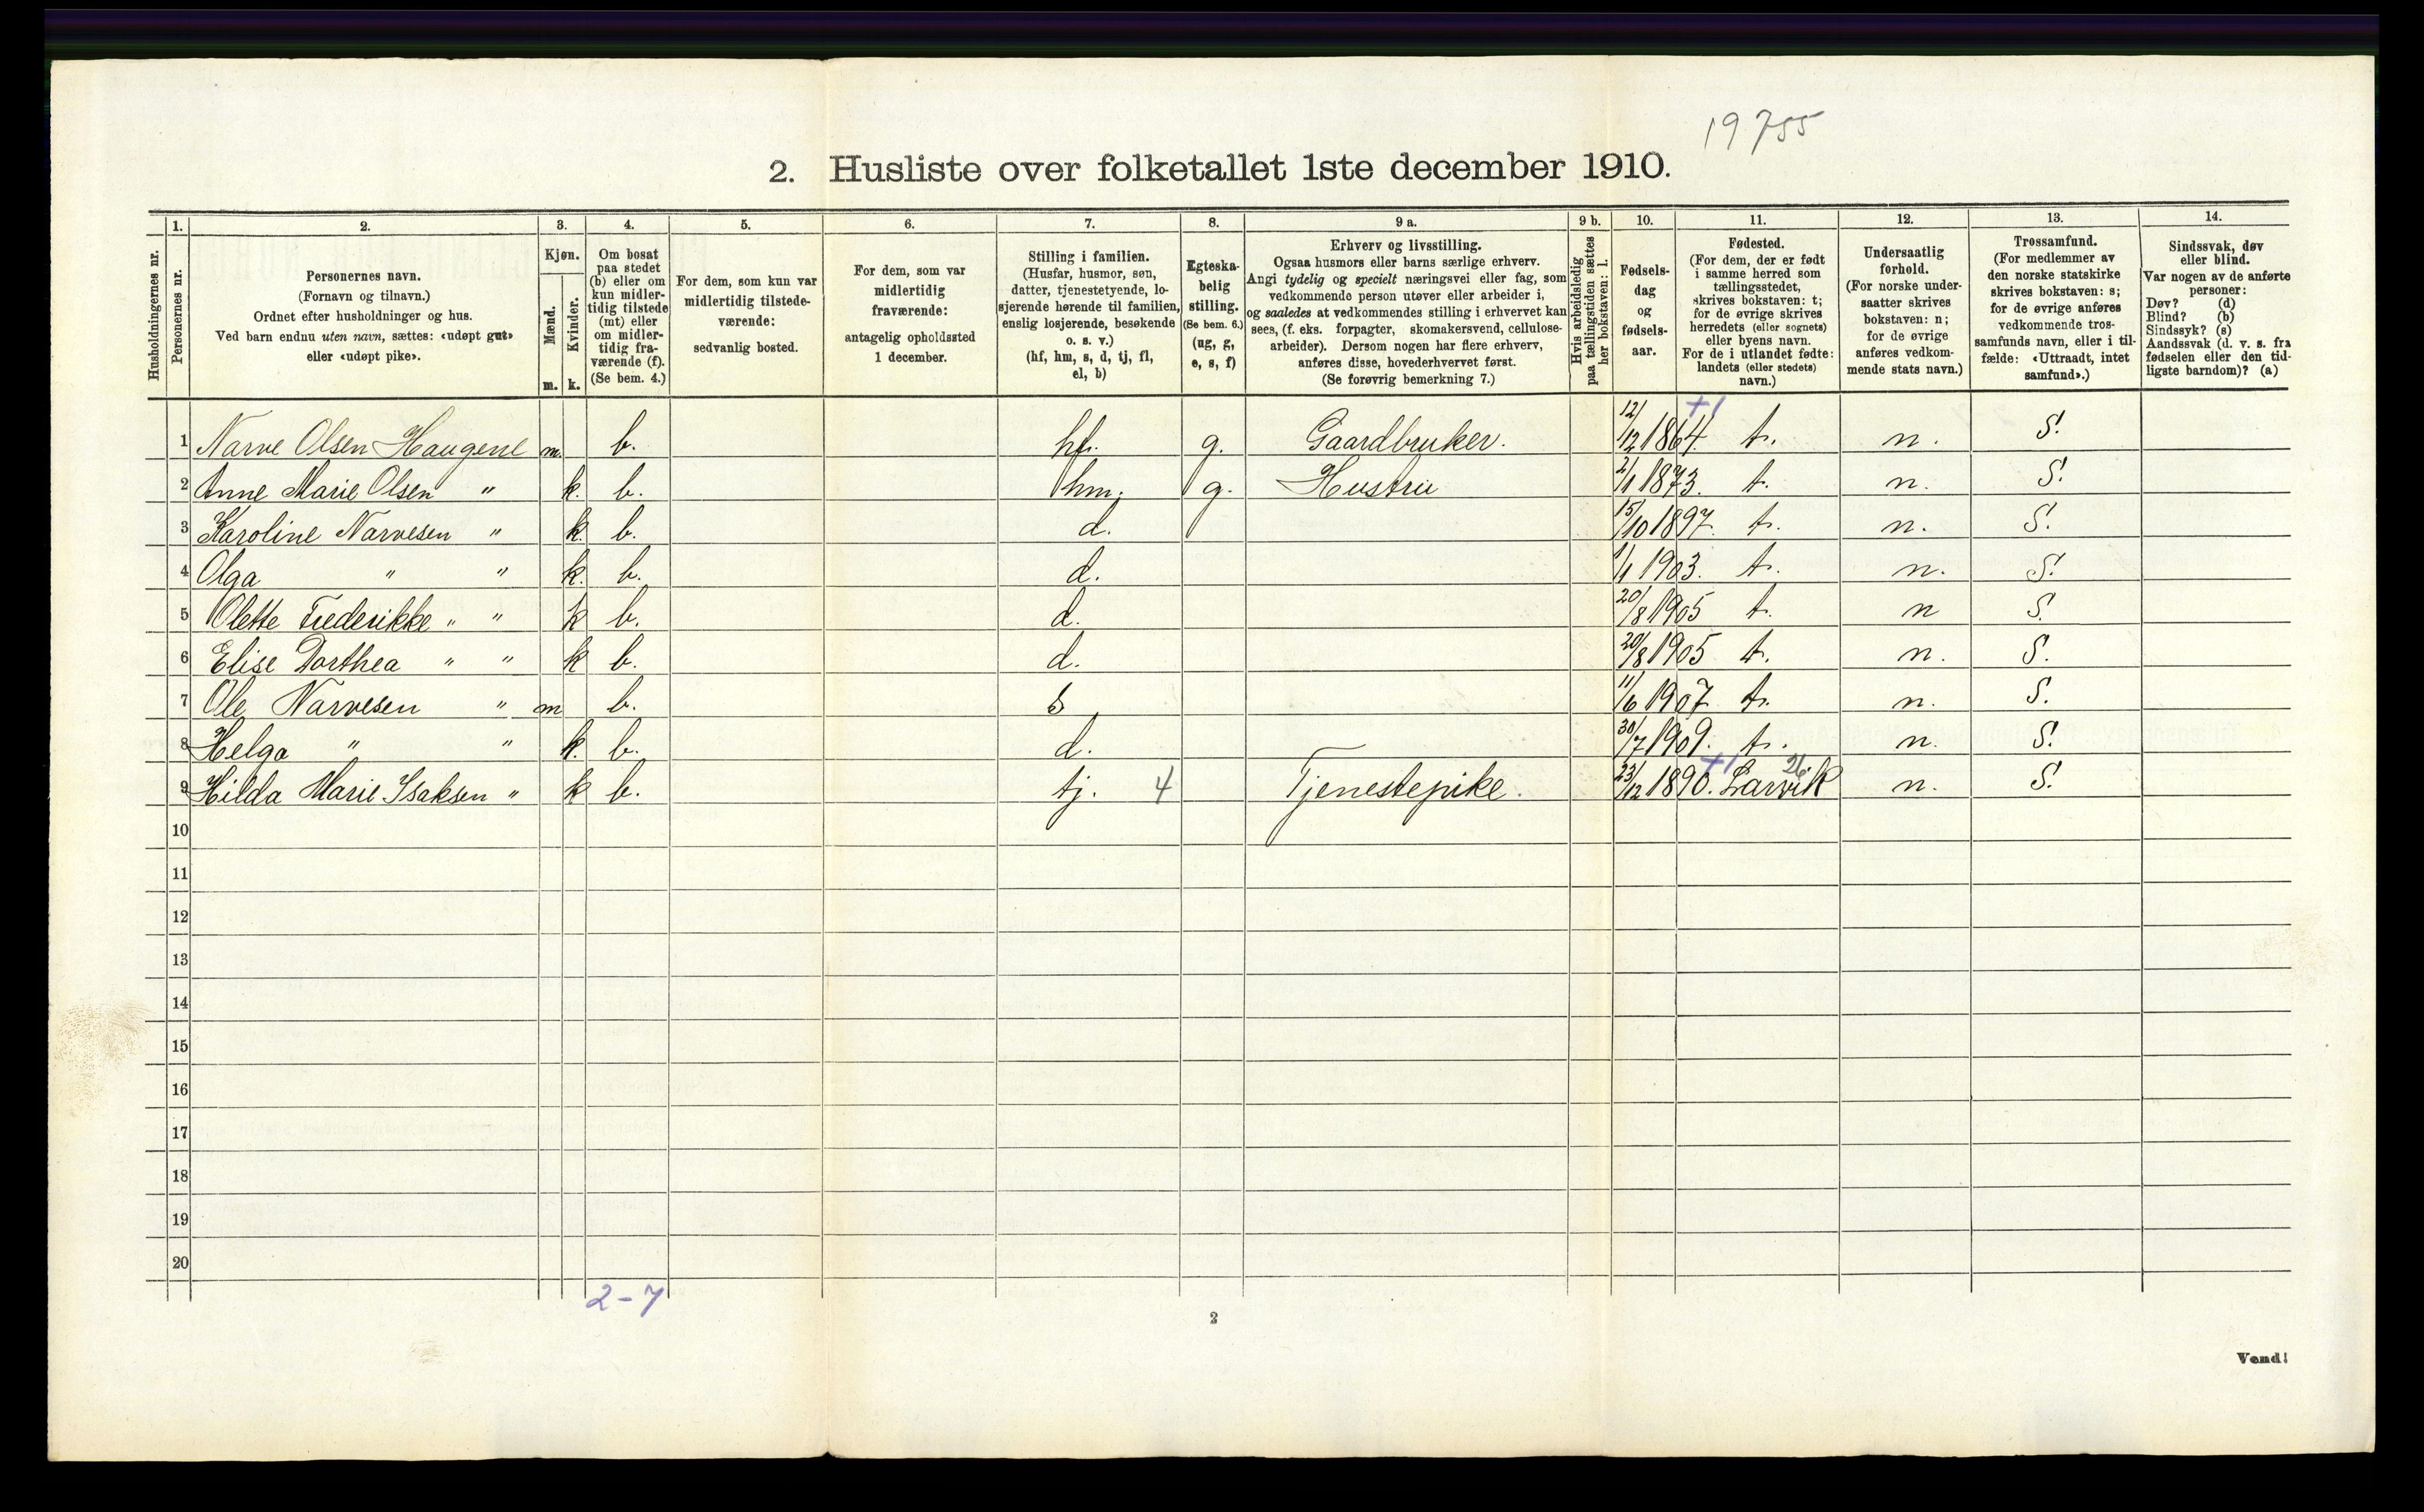 19755
2. Husliste over folketallet 1ste december 1910.
1. 2. 3. 4. 5. 6. 7. 8. 9 a. 9 b. 10. 11. 12. 13. 14.
Husholdningernes nr.
Personernes nr.
Personernes navn.
(Fornavn og tilnavn.)
Ordnet efter husholdninger og hus.
Ved barn endnu uten navn, sættes: «udøpt gut»
eller «udøpt pike».
Kjøn.
Mænd.
Kvinder.
m. k.
Om bosat
paa stedet
(b) eller om
kun midler-
tidig tilstede
(mt) eller
om midler-
tidig fra-
værende (f).
(Se bem. 4.)
For dem, som kun var
midlertidig tilstede-
værende:
sedvanlig bosted.
For dem, som var
midlertidig
fraværende:
antagelig opholdssted
1 december.
Stilling i familien.
(Husfar, husmor, søn,
datter, tjenestetyende, lo-
sjerende hørende til familien,
enslig losjerende, besøkende
o. s. v.)
(hf, hm, s, d, tj, fl,
el, b)
Egteska-
belig
stilling.
(Se bem. 6.)
(ug, g,
e, s, f)
Erhverv og livsstilling.
Ogsaa husmors eller barns særlige erhverv.
Angi tydelig og specielt næringsvei eller fag, som
vedkommende person utøver eller arbeider i,
og saaledes at vedkommendes stilling i erhvervet kan
sees, (f. eks. forpagter, skomakersvend, cellulose-
arbeider). Dersom nogen har flere erhverv,
anføres disse, hovederhvervet først.
(Se forøvrig bemerkning 7.)
Hvis arbeidsledig
paa tællingstiden sættes
her bokstaven: l.
Fødsels-
dag
og
fødsels-
aar.
Fødested.
(For dem, der er født
i samme herred som
tællingsstedet,
skrives bokstaven: t;
for de øvrige skrives
herredets (eller sognets)
eller byens navn.
For de i utlandet fødte:
landets (eller stedets)
navn.)
Undersaatlig
forhold.
(For norske under-
saatter skrives
bokstaven: n;
for de øvrige
anføres vedkom-
mende stats navn.)
Trossamfund.
(For medlemmer av
den norske statskirke
skrives bokstaven: s;
for de øvrige anføres
vedkommende tros-
samfunds navn, eller i til-
fælde: «Uttraadt, intet
samfund».)
Sindssvak, døv
eller blind.
Var nogen av de anførte
personer:
Døv? (d)
Blind? (b)
Sindssyk? (s)
Aandssvak (d. v. s. fra
fødselen eller den tid-
ligste barndom)? (a)
1 Narve Olsen Haugene m. b. hf. g. Gaardbruker. 12/12 1864 +1 t. n. S.
2 Anne Marie Olsen " k. b. hm. g. Hustru 2/1 1873. t. n. S.
3 Karoline Narvesen " k. b. d. 15/10 1897. t. n. S.
4 Olga " " k. b. d. 1/1 1903. t. n. S.
5 Olette Frederikke " " k b. d. 20/8 1905 t. n S.
6 Elise Dorthea " " k b. d. 20/8 1905 t. n. S.
7 Ole Narvesen " m b. s 11/6 1907 t. n. S.
8 Helga " " k. b. d. 30/7 1909. t. n. S.
9 Hilda Marie Isaksen " k b. tj. 4 Tjenestepike. 23/12 1890. +1 Larvik 26 n. S.
10
11
12
13
14
15
16
17
18
19
20
2-7
2
Vend!